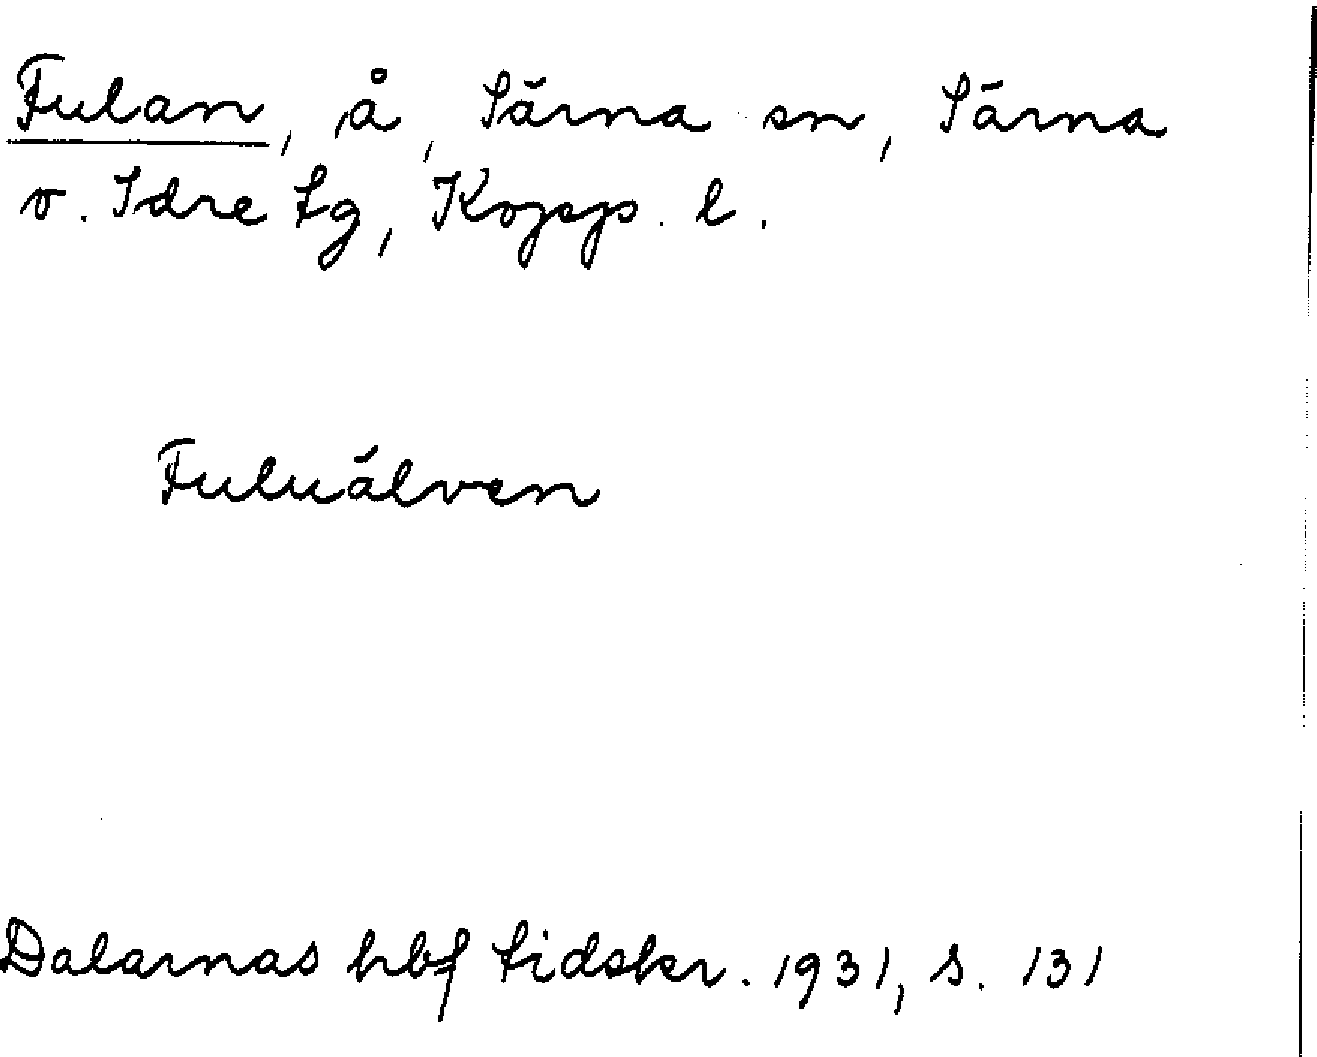 Fulan, å, Särna sn, Särna
o. Idre tg, Kopp. l.
Fuluälven
Dalarnas hbf tidskr. 1931, s. 131